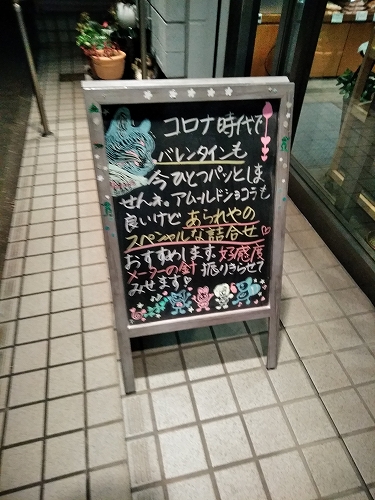 コロナ時代で
バレンタインも
今ひとつパッとしま
せんネ。アムールドショコラも
良いけど あられやの
スペシャルな詰合せ♡
おすすめします。好感度
メーターの針 振りきらせて
みせます♡